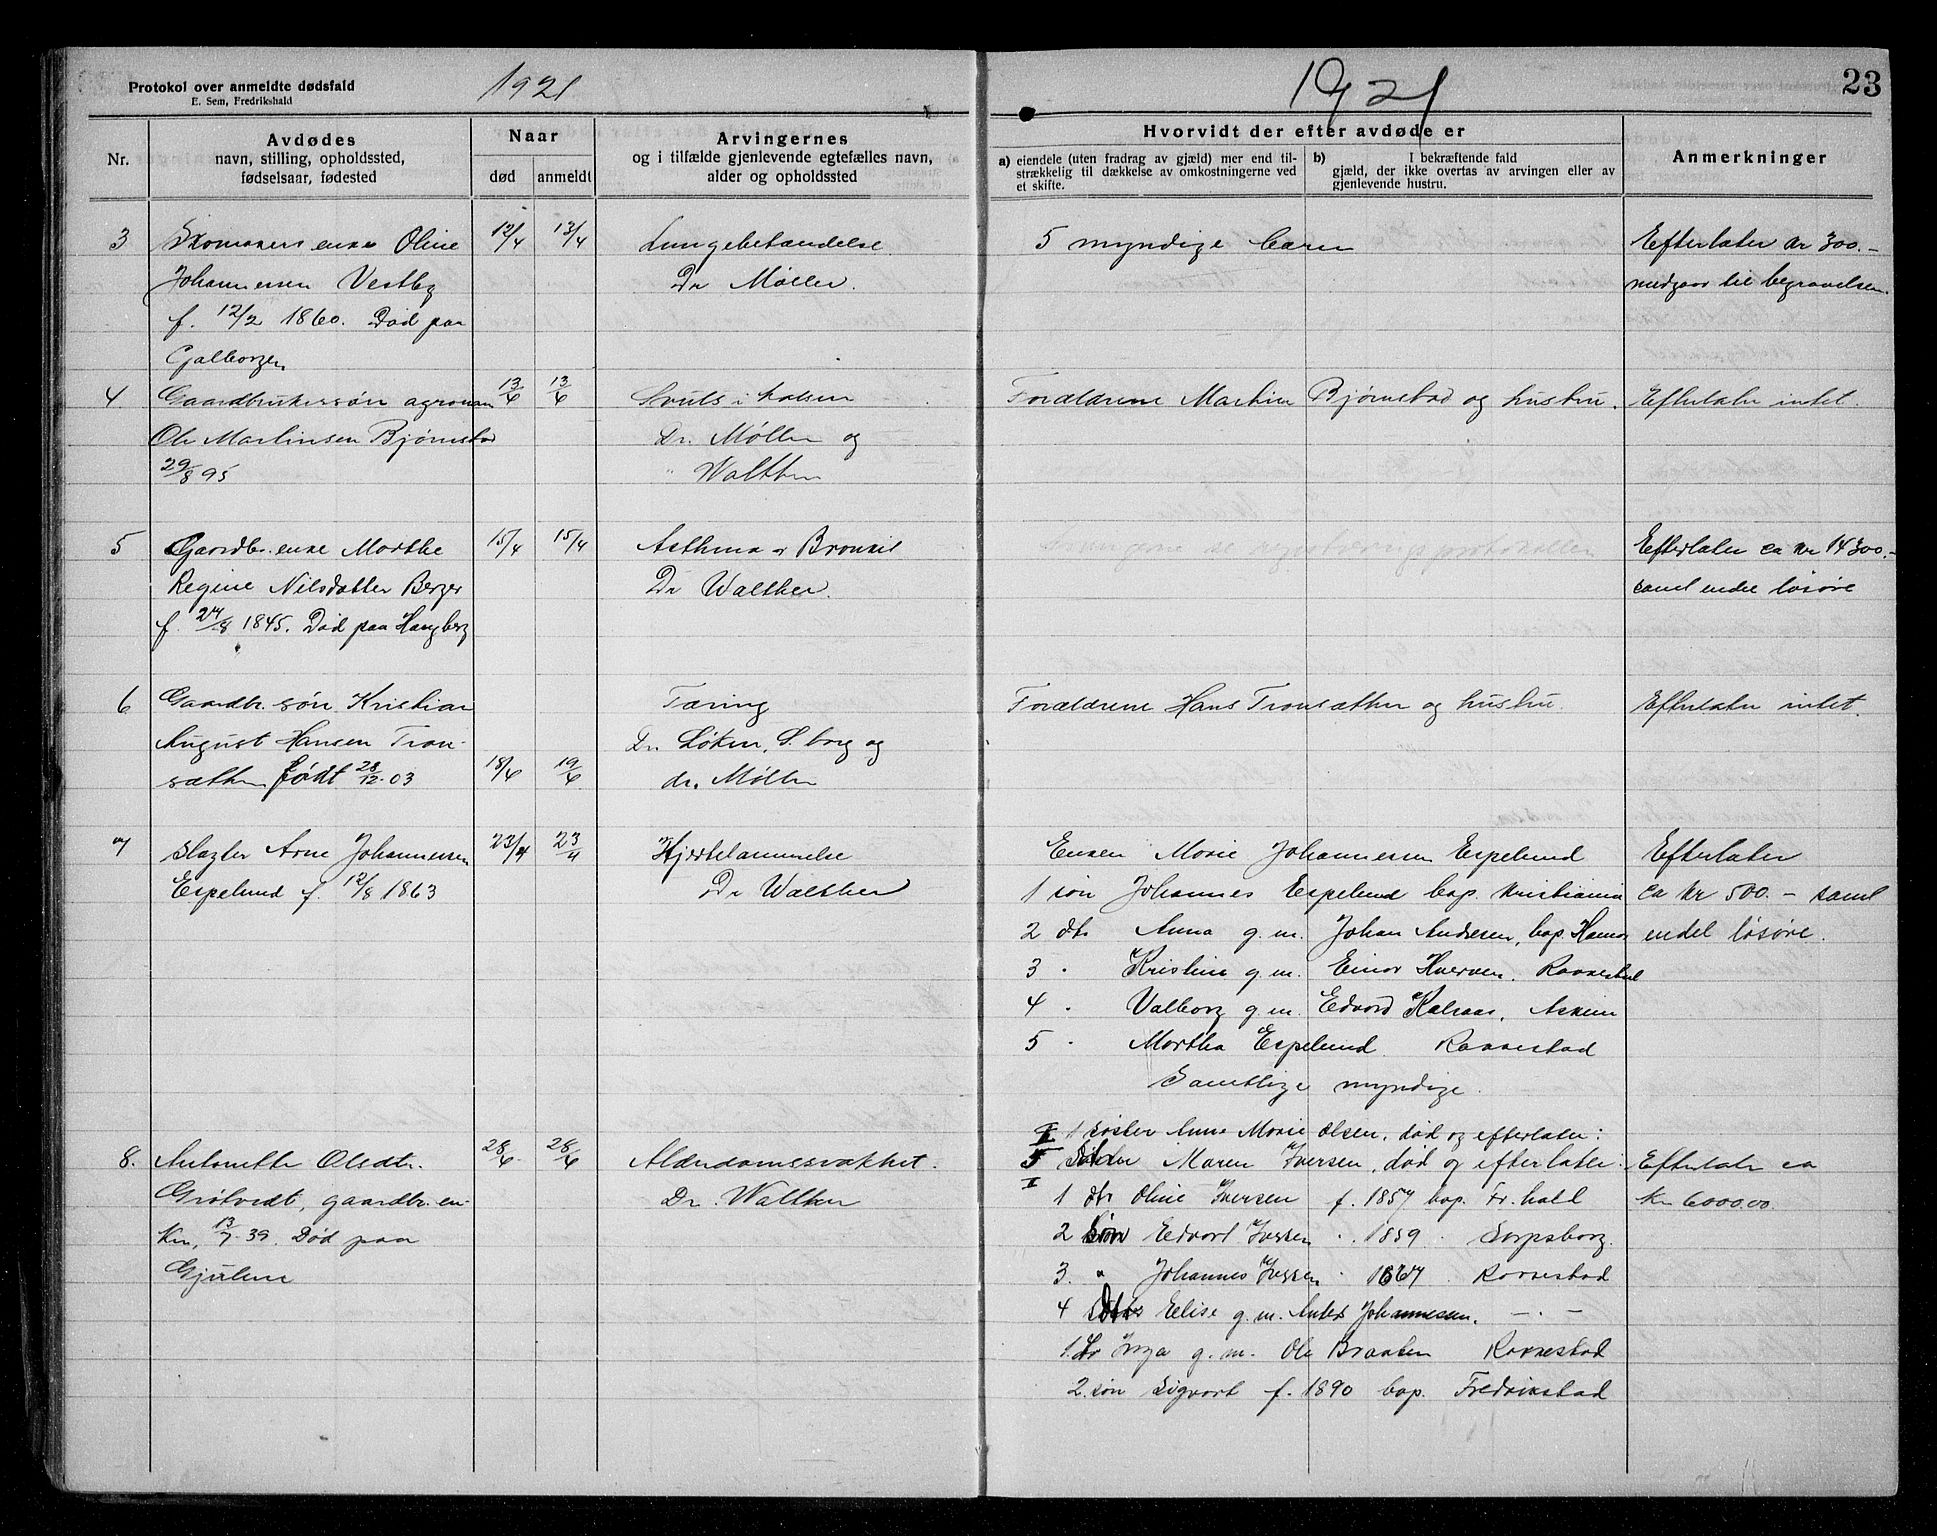 Protokol over anmeldte dødsfald
E. Sem, Fredrikshald
1921
1921
23
Nr.
Avdødes
navn, stilling, opholdssted,
fødselsaar, fødested
Naar
død
anmeldt
Arvingernes
og i tilfælde gjenlevende egtefælles navn,
alder og opholdssted
Hvorvidt der efter avdøde er
a) eiendele (uten fradrag av gjæld) mer end til-
strækkelig til dækkelse av omkostningerne ved
et skifte.
b) I bekræftende fald
gjæld, der ikke overtas av arvingen eller av
gjenlevende hustru.
Anmerkninger
3 Skomakers enke Oline 12/4 13/4 Lungebetændelse 5 myndige barn Efterlater kr 300.-
Johannessen Vestby Dr Møller. medgaar til begravelsen.
f. 12/2 1860. Død paa
Galborger
4 Gaardbrukersøn agronom 13/6 13/6 Svulst i halsen Forældrene Martin Bjørnstad og hustru. Efterlater intet.
Ole Martinsen Bjørnstad Dr. Møller og
29/8 95 " Walther
5 Gaardbr. enke Marthe 15/4 15/4 Asthma & Bronkit Arvingerne se registreringsprotokollen Efterlater ca kr 14300.-
Regine Nilsdatter Berger Dr Walther. samt endel løsøre
f. 27/8 1845. Død paa Haugberg
6 Gaardbr. søn Kristian Tæring Forældrene Hans Tronsæther og hustru. Efterlater intet.
August Hansen Tron- Dr. Løken, S.borg og
sæther født 28/12.03 18/6 19/6 dr. Møller
7 Slagter Arne Johannessen 23/4 23/4 Hjertelammelse Enken Marie Johannessen Espelund Efterlater
Espelund f. 12/8 1863 Dr Walther 1 søn Johannes Espelund bop. Kristiania ca kr 500.- samt
2 dtr Anna g.m. Johan Andresen, bop. Hamar endel løsøre.
3 " Kristine g.m. Einar Hverven. Rakkestad
4 " Valborg g.m. Edvard Kalsaas, Askim
5 " Martha Espelund Rakkestad
Samtlige myndige.
I 1 søster Anne Marie Olsen, død og efterlater:
8. Antonette Olsdtr. 28/6 28/6 Alderdomssvakhet. Maren Iversen, død og efterlater: Efterlater ca
Grøtvedt, gaardbr. en- Dr. Walther 1 dtr Oline Iversen f. 1857 bop. Fr.hald Kr 6000.00.
ke, 13/7.39. Død paa 2 søn Edvart Iversen " 1859 " Sarpsborg.
Gjulem 3. " Johannes Iversen " 1867 Rakkestad
4 dtr Elise g.m. Anders Johannesen. — " —
1. dtr Inga g.m. Ole Braaten Rakkestad
2. søn Sigvart f. 1890 bop. Fredrikstad